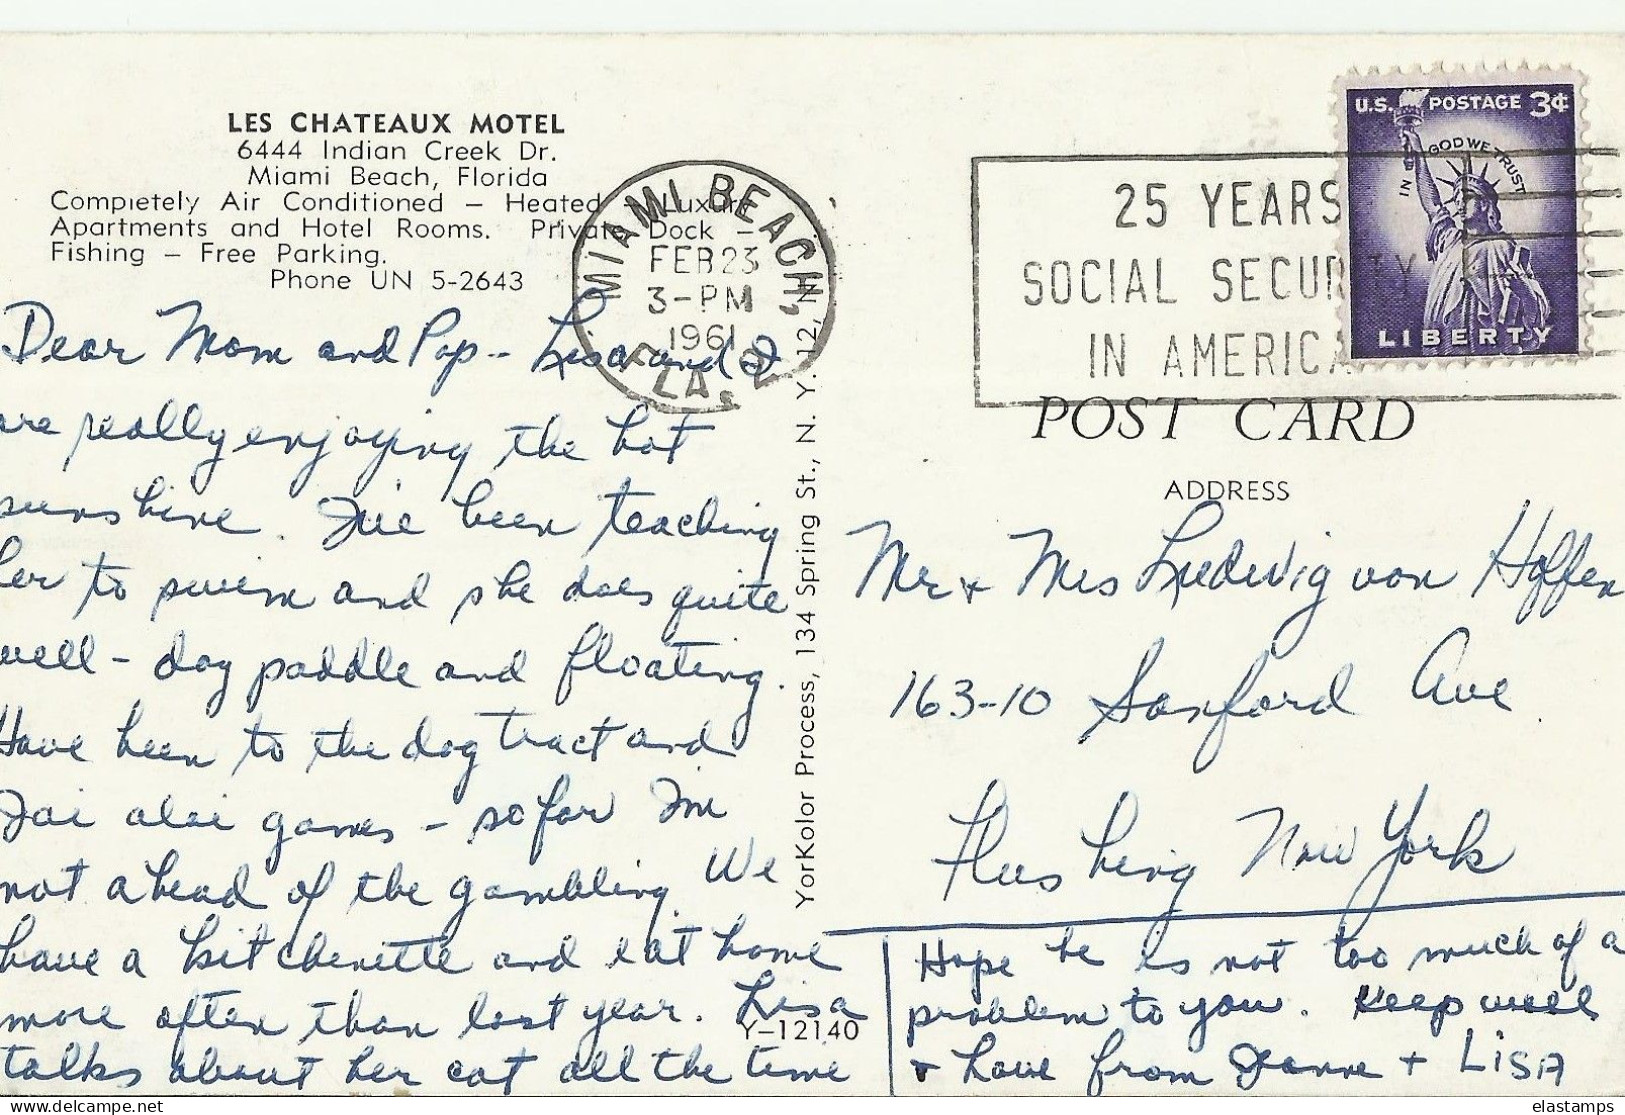 LES CHATEAUX MOTEL
6444 Indian Creek Dr.
Miami Beach, Florida
Completely Air Conditioned – Heated – Luxury
Apartments and Hotel Rooms. Private Dock –
Fishing – Free Parking.
Phone UN 5-2643
Dear Mom and Pop - Lisa and I
are really enjoying the hot
sunshine. I've been teaching
her to swim and she does quite
well - dog paddle and floating.
Have been to the dog tract and
Jai alai games - so far I'm
not ahead of the gambling. We
have a kitchenette and eat home
more often than last year. Lisa
talks about her cat all the time
Y-12140
YorKolor Process, 134 Spring St., N. Y. 12, N.
MIAMI BEACH,
FEB 23
3-PM
1961
FLA. 2
25 YEARS
SOCIAL SECURITY
IN AMERICA
U.S. POSTAGE 3¢
IN GOD WE TRUST
LIBERTY
POST CARD
ADDRESS
Mr & Mrs Ludwig von Hoffen
163-10 Sanford Ave
Flushing New York
Hope he is not too much of a
problem to you. Keep well
& love from Jeanne + LISA
elastamps